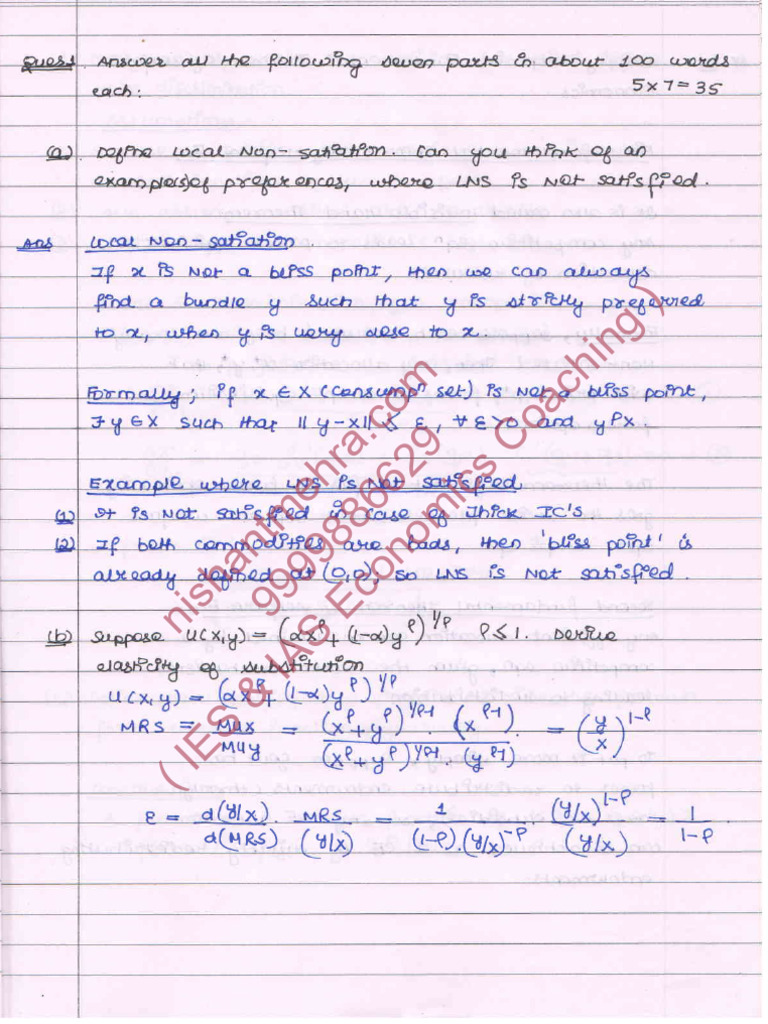 Ques Answer all the following seven parts in about 100 words
each: 5x7=35
(a) Define Local Non-satiation. Can you think of an
example(s) of preferences, where LNS is Not satisfied.
Ans Local Non-satiation.
If x is Not a bliss point, then we can always
find a bundle y such that y is strictly preferred
to x, when y is very close to x.
Formally; if x ∈ X (Consumpⁿ set) is Not a bliss point,
∃ y ∈ X such that ||y-x|| < ε, ∀ ε > 0 and y P x
Example where LNS is Not satisfied.
(1) It is Not satisfied in case of Thick IC's
(2) If both commodities are bads, then 'bliss point' is
already defined at (0,0), so LNS is Not satisfied.
(b) Suppose U(x,y) = (αx^ρ + (1-α)y^ρ)^1/ρ ρ ≤ 1. Derive
elasticity of substitution
U(x,y) = (αx^ρ + (1-α)y^ρ)^1/ρ
MRS = MUx/MUy = (x^ρ+y^ρ)^1/ρ-1 . (x^ρ-1) / (x^ρ+y^ρ)^1/ρ-1 . (y^ρ-1) = (y/x)^1-ρ
ε = d(y/x)/d(MRS) . MRS/(y/x) = 1/(1-ρ).(y/x)^-ρ . (y/x)^1-ρ/(y/x) = 1/1-ρ .
nishantmehra.com
9999886629
( IES & IAS Economics Coaching )